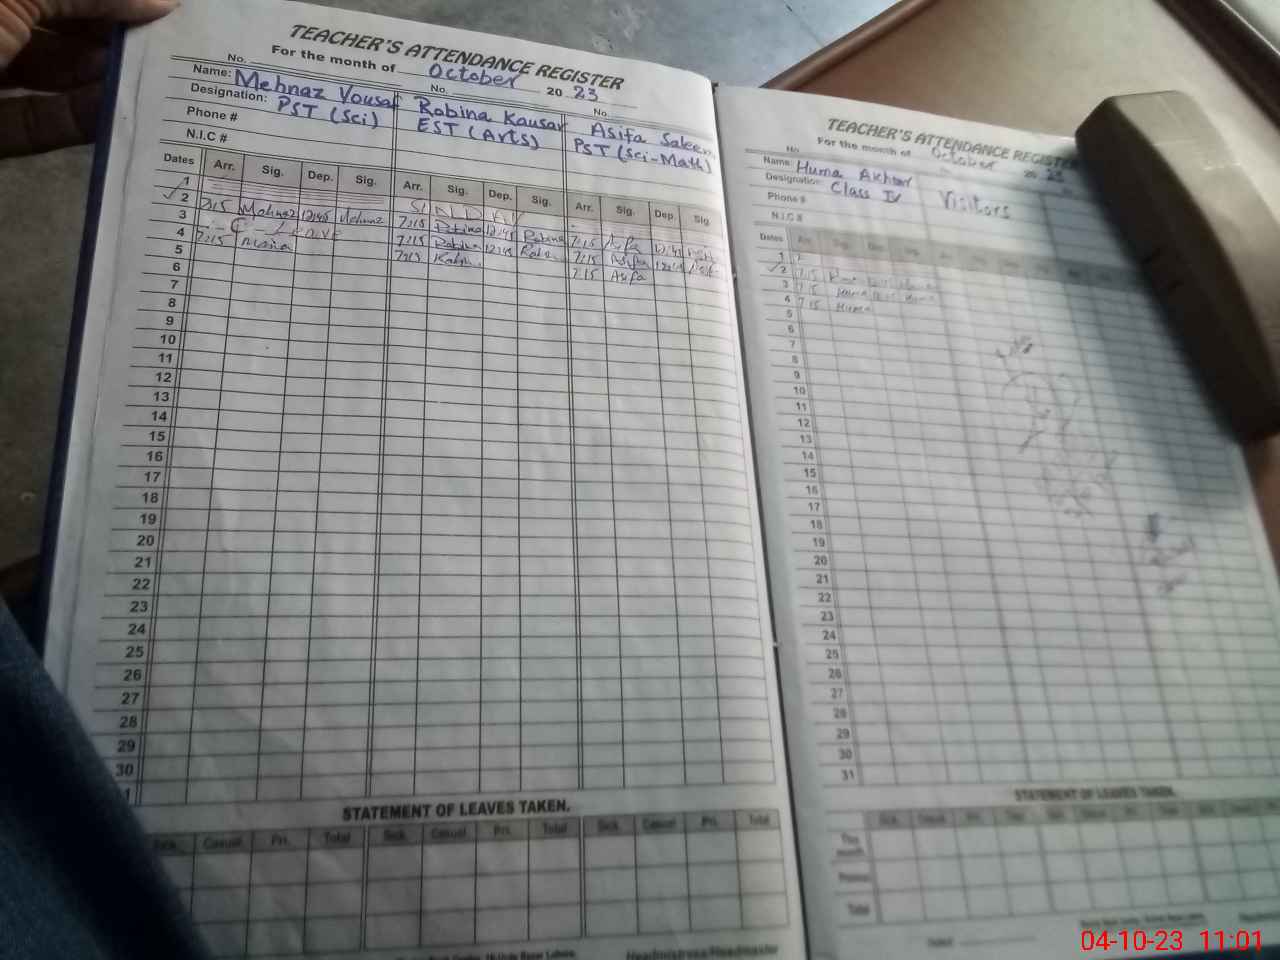 TEACHER'S ATTENDANCE REGISTER
For the month of October 2023
No. No. No.
Name: Mehnaz Yousaf Robina Kausar Asifa Saleem
Designation: PST (Sci) EST (Arts) PST (Sci-Math)
Phone #
N.I.C #
Dates Arr. Sig. Dep. Sig. Arr. Sig. Dep. Sig. Arr. Sig. Dep. Sig.
1 SUNDAY
2 7:15 Mehnaz 12:45 Mehnaz 7:15 Robina 12:45 Robina 7:15 Asifa 12:45
3 C-Leave 7:15 Robina 12:45 Robina 7:15 Asifa
4 7:15 7:15 Asifa
5
6
7
8
9
10
11
12
13
14
15
16
17
18
19
20
21
22
23
24
25
26
27
28
29
30
STATEMENT OF LEAVES TAKEN.
Sick. Casual Pri. Total Sick. Casual Pri. Total Sick. Casual Pri. Total
Headmistress/Headmaster
TEACHER'S ATTENDANCE REGISTER
For the month of October 2023
No.
Name: Huma Akhtar Visitors
Designation: Class IV
Phone #
N.I.C #
Dates
1
2 7:15
3 7:15 Huma 12:45 Huma
4 7:15 Huma
5
6
7
8
9
10
11
12
13
14
15
16
17
18
19
20
21
22
23
24
25
26
27
28
29
30
31
STATEMENT OF LEAVES TAKEN.
This month
Total
04-10-23 11:01